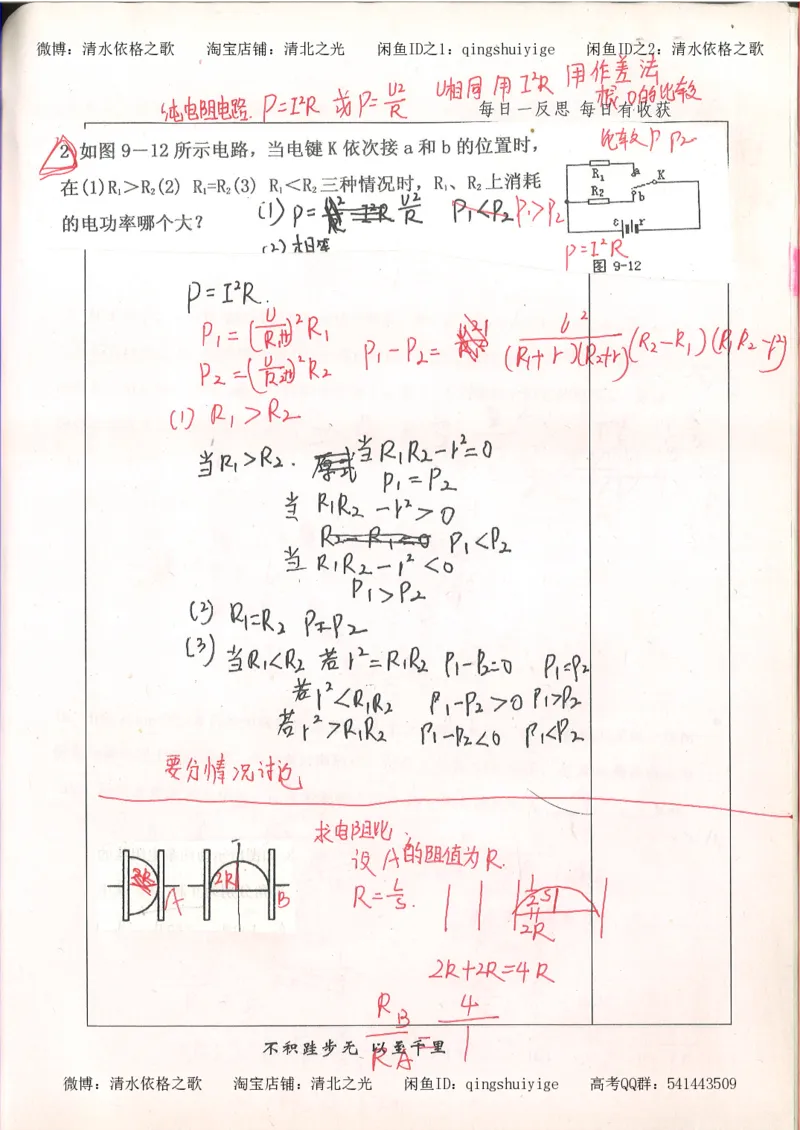 微博：清水依格之歌 淘宝店铺：清北之光 闲鱼ID之1：qingshuiyige 闲鱼ID之2：清水依格之歌
纯电阻电路. P=I²R 或 P=U²/R U相同 用I²R 用作差法
每日一反思 每日有收获
根D的比较
比较P₁ P₂
2 如图9－12所示电路，当电键K依次接a和b的位置时，
在(1)R₁＞R₂(2) R₁=R₂(3) R₁＜R₂三种情况时，R₁、R₂上消耗
的电功率哪个大？
(1) P= U²/R P₁<P₂ P₁>P₂
(2)相等
R₁ a K
R₂ b
ε r
P=I²R
图 9-12
P=I²R.
P₁=(U/R₁总)²R₁
P₂=(U/R₂总)²R₂
P₁-P₂= (R₁+r)(R₂+r) (R₂-R₁)(R₁R₂-r²)
(1) R₁>R₂
当R₁>R₂. 当R₁R₂-r²=0
P₁=P₂
当 R₁R₂-r²>0
R₂-R₁<0 P₁<P₂
当 R₁R₂-r²<0
P₁>P₂
(2) R₁=R₂ P₁=P₂
(3) 当R₁<R₂ 若r²=R₁R₂ P₁-P₂=0 P₁=P₂
若r²<R₁R₂ P₁-P₂>0 P₁>P₂
若r²>R₁R₂ P₁-P₂<0 P₁<P₂
要分情况讨论
求电阻比
设A的阻值为R.
2R A 2R B
R=L/S. ½S
2R
2R+2R=4R
R_B/R_A=4/1
不积跬步无以至千里
微博：清水依格之歌 淘宝店铺：清北之光 闲鱼ID：qingshuiyige 高考QQ群：541443509